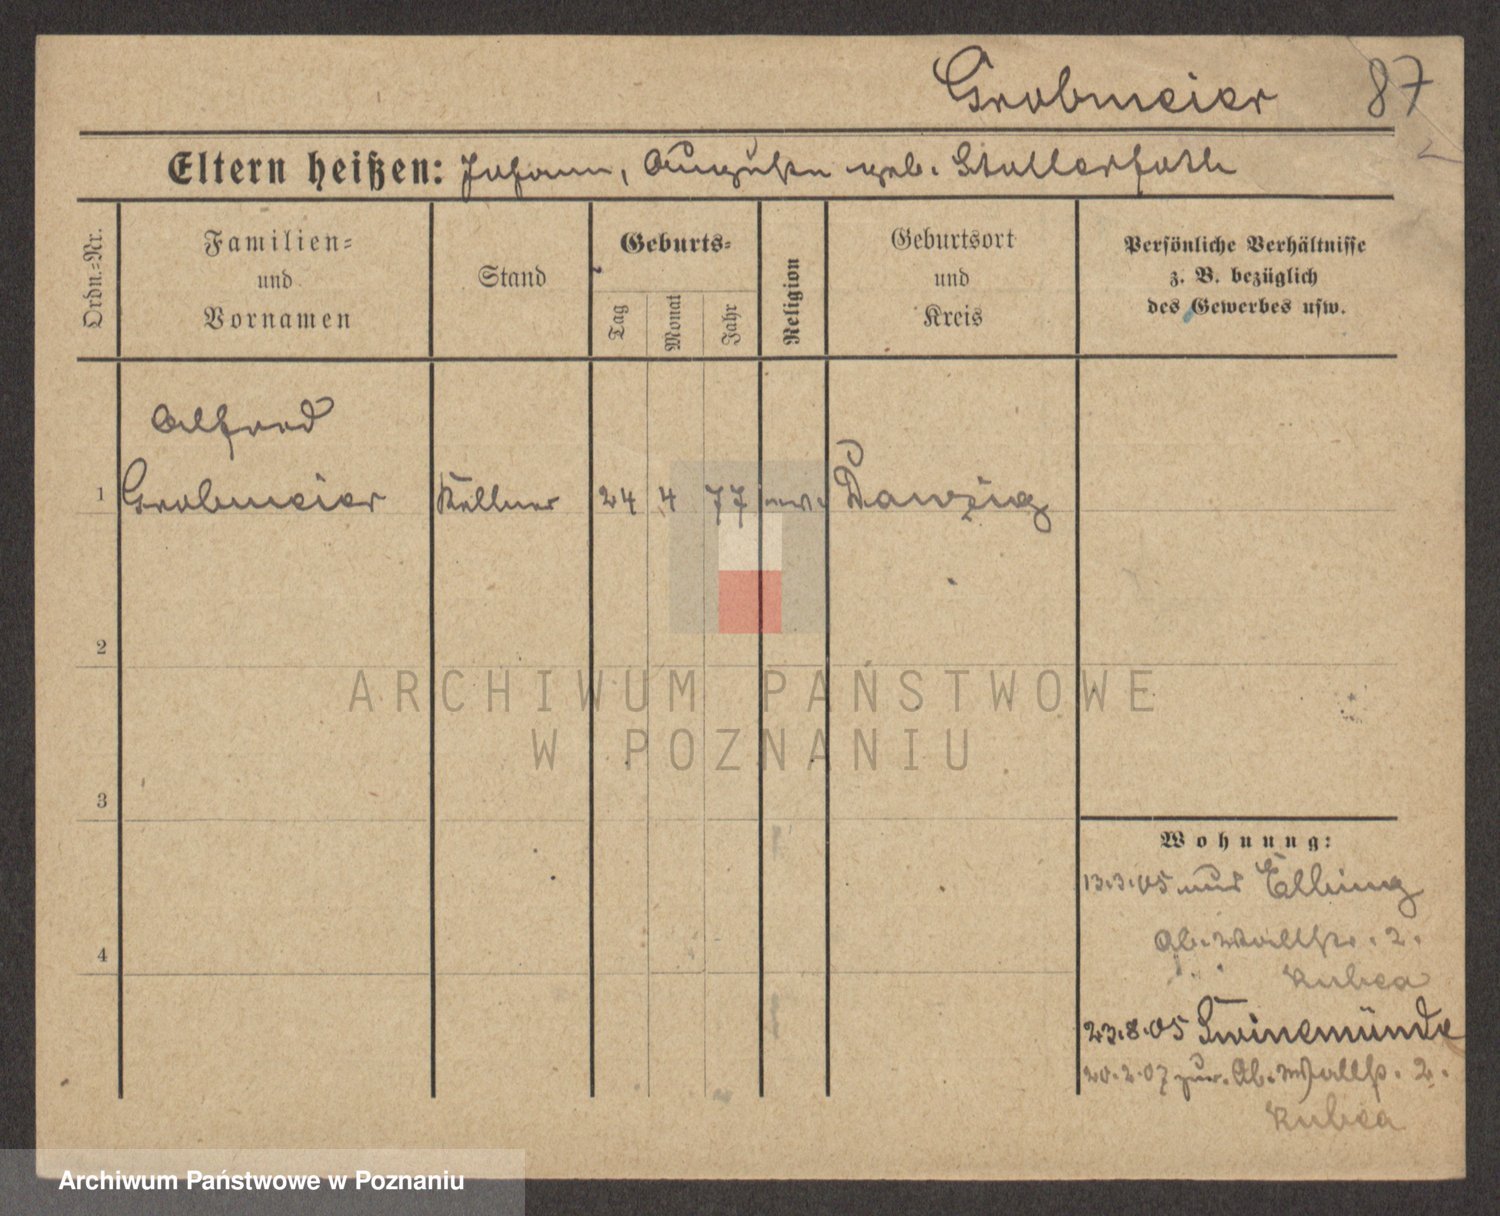 Grobmeier 87
Eltern heißen: Johann, Auguste geb. Stollerfoth
Ordn.-Nr.
Familien-
und
Vornamen
Stand
Geburts-
Tag
Monat
Jahr
Religion
Geburtsort
und
Kreis
Persönliche Verhältnisse
z. B. bezüglich
des Gewerbes usw.
Alfred
1 Grobmeier Kellner 24 4 77 Danzig
2
ARCHIWUM PAŃSTWOWE
W POZNANIU
3
Wohnung:
13.3.05 aus Elbing
Ob. Wallstr. 2.
Kubea
4
23.8.05 Swinemünde
20.2.07 zur. Ob. Wallstr. 2.
Kubea
Archiwum Państwowe w Poznaniu